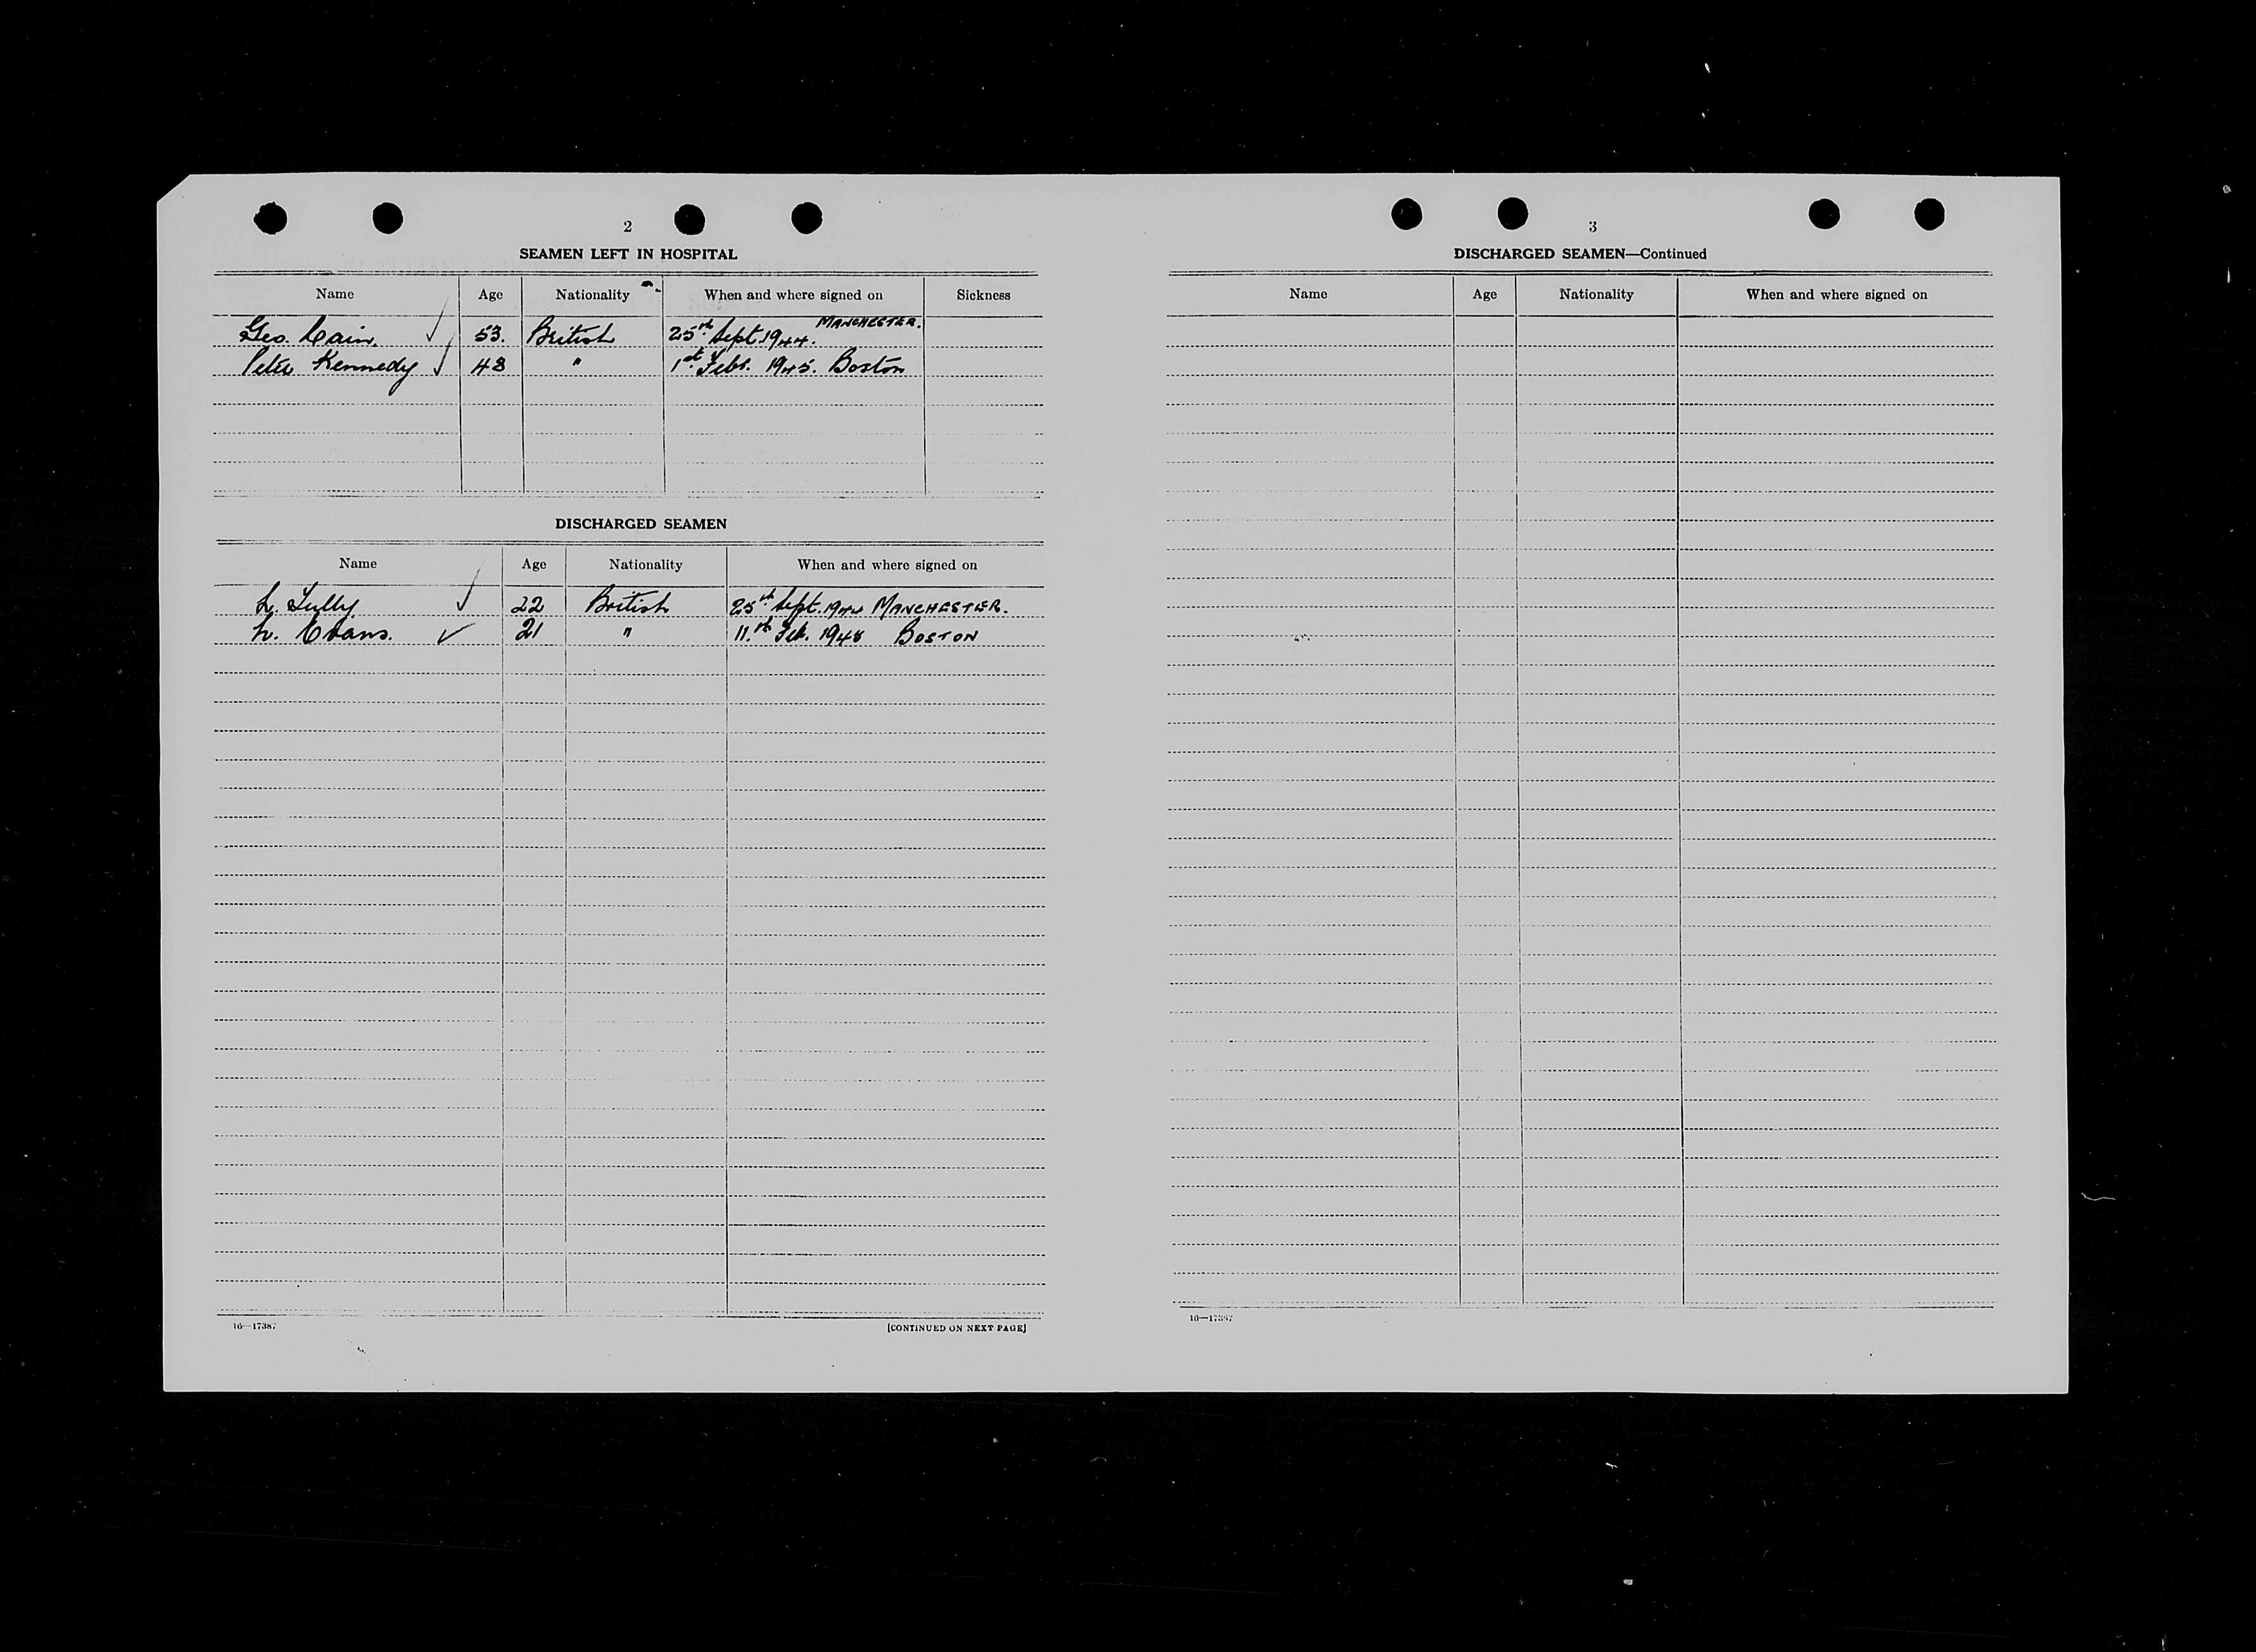 2
SEAMEN LEFT IN HOSPITAL
Name Age Nationality When and where signed on Sickness
Geo. Cain. 53. British 25th Sept. 1944. MANCHESTER.
Peter Kennedy 48 " 1st Feb. 1945. Boston
DISCHARGED SEAMEN
Name Age Nationality When and where signed on
L. Tully 22 British 25th Sept. 1944 MANCHESTER.
Evans. 21 " 11.th Feb. BOSTON
16—17387
[CONTINUED ON NEXT PAGE]
3
DISCHARGED SEAMEN—Continued
Name Age Nationality When and where signed on
16—17387